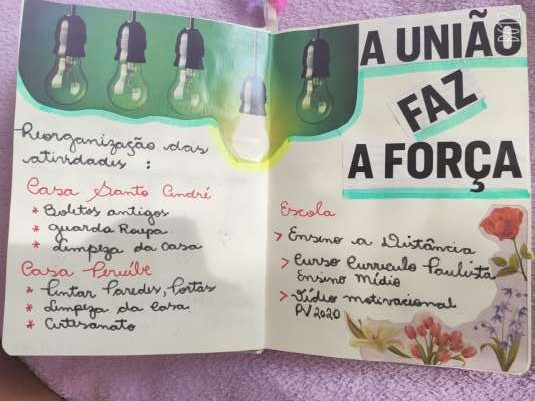 Reorganização das
atividades :
Casa Santo André
* Boletos antigos
* guarda Roupa
* limpeza da casa
Casa Peruíbe
* Pintar Paredes, Portas
* Limpeza da Casa
* Artesanato
A UNIÃO
FAZ
A FORÇA
Escola
> Ensino a Distância
> Curso Curriculo Paulista
Ensino Médio
> Vídeo motivacional
PV2020